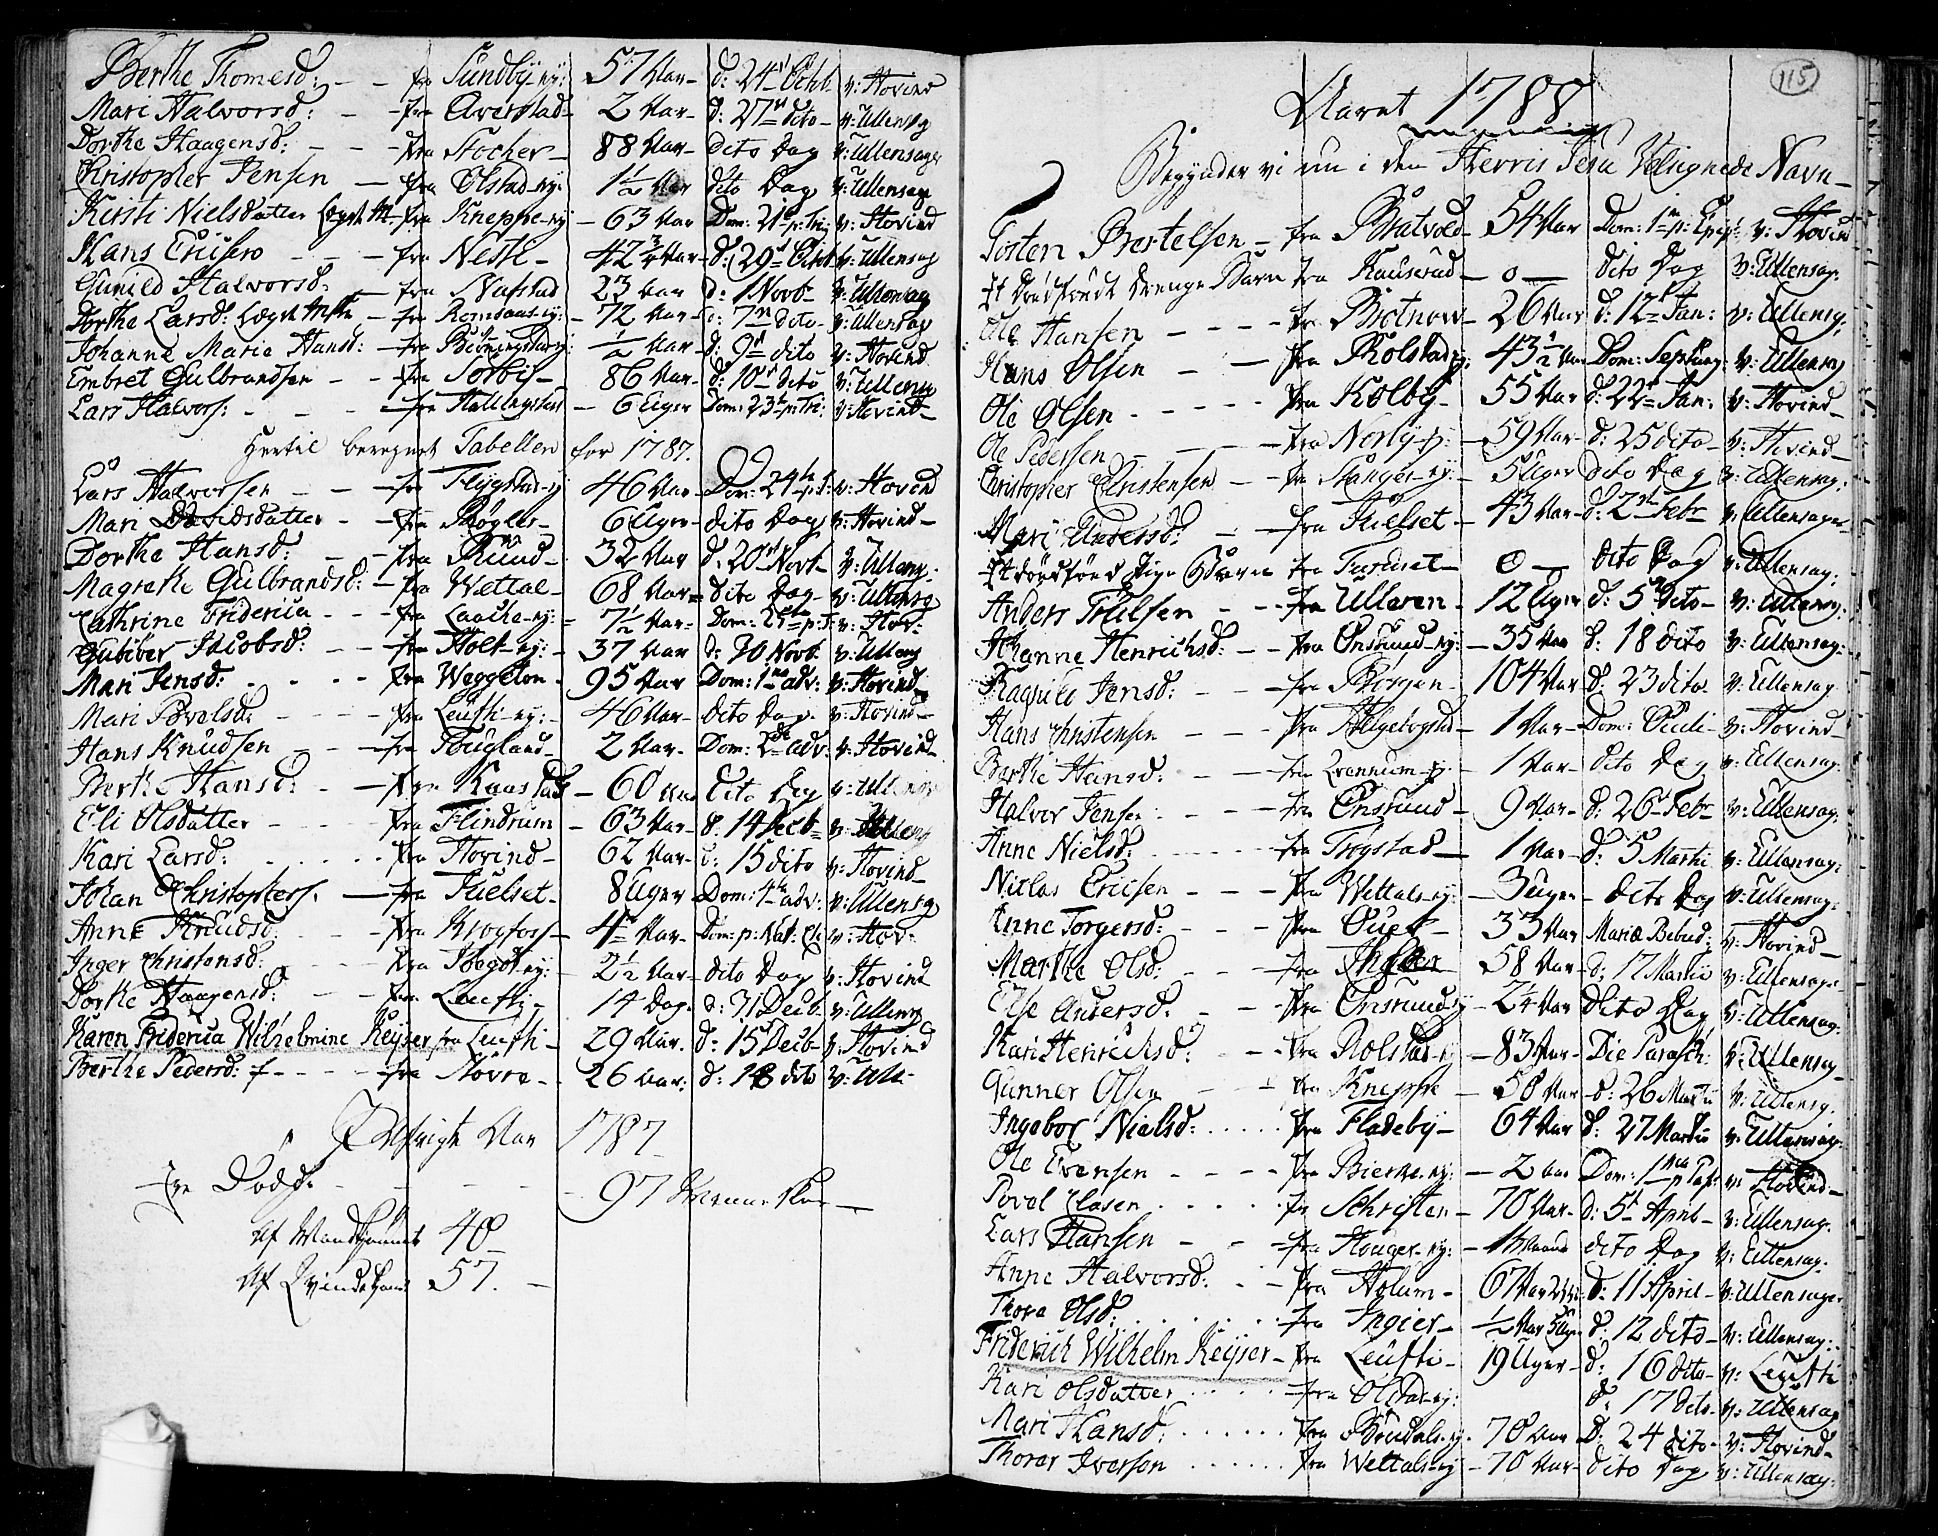 Berthe Thomesd: - - fra Sundby-ey: 57 Aar- d: 24 Octb. v: Hovind
Mari Halvorsd: - - fra Averstad- 2 Aar- d: 27 dito- v: Ullensag
Dorthe Haagensd: - - - fra Stocker- 88 Aar- dito Dag v: Ullensager
Christopher Jensen - fra Olstad-ey: 1½ Aar dito Dag v: Ullensag
Kirsti Nielsdatter Lægds M- fra Kneppe-ey- 63 Aar Dom: 21 p: Tri: v: Hovind
Hans Ericsen - - - fra Nesti- 42¾ Aar- d: 29 Octb v: Ullensag
Gunild Halvorsd. - fra Nafstad 23 Aar d: 1 Novb- v: Ullensag
Dorthe Larsd: Lægds - fra Romsaas-ey:- 72 Aar- d: 7 dito- v: Ullensag
Johanne Marie Hansd: - fra - ½ Aar- d: 9 dito v: Hovind
Embret Gulbrandsen - - fra Sørbij- 86 Aar- d: 10 dito v: Ullensag
Lars Halvors: - - - fra - 6 Uger Dom: 23 p: Tri: v: Hovind-
Hertil beregnet Tabellen for 1787.
Lars Halvorsen - - - fra Flygstad-ey 46 Aar- Dom: 24 p: T: v: Hovind
Mari Davidsdatter - - fra Røgler- 6 Uger- dito Dag v: Hovind-
Dorthe Hansd: - - fra Ruud- 32 Aar d: 20 Novb- v: Ullensag:
Magrethe Gulbrandsd:- fra Wættal- 68 Aar= dito Dag- v: Ullensag
Cathrine Fridericia - - fra Laache-ey:= 7½ Aar= Dom: 25 p: T: v: Hov:
Gubiør Jacobsd: - - fra Holt-ey:- 37 Aar d: 30 Novb v: Ullensag
Mari Jensd: - - - - fra Weggelom- 95 Aar Dom: 1 adv: v: Hovind
Mari Povelsd: - - - fra Leufti-ey:- 46 Aar- dito Dag- v: Hovind-
Hans Knudsen - - fra Fougland- 2 Aar- Dom: 2de adv: v: Hovind-
Berthe Hansd: - - fra Kaasstad - 60 Aar dito Dag v: Ullensag
Eli Olsdatter - - - fra Flindrum - 63 Aar- d: 14 Decb= v: Ullensag
Kari Larsd: . . . . . fra Hovind- 62 Aar- d: 15 dito v: Hovind-
Johan Christophers. - fra Juelset- 8 Uger Dom: 4 adv: v: Ullensag
Anne Knudsd: - - - fra Krogfoss- 4 Aar- Dom: p: Nat: C: v: Hov:
Inger Christensd: - - - fra -ey:- 2½ Aar- dito Dag v: Hovind
Dorthe Haagensd: - - - fra Leufti- 14 Dag. d: 31 Decb- v: Ullensag
Karen Fridericia Wilhelmine Keyser fra Leufti- 29 Aar. d: 15 Decb- v: Hovind
Berthe Pedersd: - - - - fra Høvre- 26 Aar: d: 18 dito v: Ull-
I Afvigte Aar 1787
Ere Døde - - - - - 97 Mennesker-
Af Mandkjønnet 40
Af Qvindekjønnet 57. -
115
Aaret 1788
Begynder vi nu i den Herris Jesu Velsignede Navn-
Tosten Bertelsen - fra Bratvold- 54 Aar Dom: 1 p: Epiph: v: Hovind
Et Dødfødt Drenge Barn fra Kauserud- 0- dito Dag v: Ullensag.
Ole Hansen - - - - fra Brotnow- 26 Aar d: 12 Jan: v: Ullensag:
Hans Olsen - - - fra Rolstad-ey: 43½ Aar Dom: Septuag: v: Ullensag
Ole Olsen - - - - - fra Kolby- 55 Aar d: 22 Jan: v: Hovind-
Ole Pedersen - - - fra Norby-ey:- 59 Aar- d: 25 dito- v: Hovind-
Christopher Christensen - - fra Stanger-ey:- 5 Uger dito Dag v: Ullensag.
Mari Andersd: - - fra Juelset- 43 Aar- d: 2 Febr v: Ullensager
Et dødfød Pige Barn fra - 0- dito Dag v: Ullensag:
Anders Trulsen - - - fra Ulleren- 12 Uger d: 5 dito- v: Ullensag.
Johanne Henrichsd: - - fra Onsrud-ey:- 35 Aar d: 18 dito v: Ullensag:
Ragnild Jensd: - - - fra Borgen- 104 Aar d: 23 dito- v: Ullensag
Hans Christensen - - - fra Helgebogstad- 1 Aar- Dom: Oculi- v: Hovind-
Berthe Hansd: - - fra Qvennum-ey- 1 Aar- dito Dag v: Ullensag.
Halver Jensen - - - - fra Onsrud- 9 Aar- d: 26 Febr v: Ullensag:
Anne Nielsd: . . . . . . fra Trogstad- 1 Aar- d: 5 Martii v: Ullensag:
Niclas Ericsen - - - fra Wettals-ey:- 3 uger - dito Dag v: Ullensag:
Anne Torgersd: - - - fra - 33 Aar Mariæ Bebud: v: Hovind-
Marthe Olsd: - - - fra 58 Aar- d: 17 Martii v: Ullensag.
Else Andersd: - - fra Onsrud-ey- 2¼ Aar dito Dag v: Ullensag:
Kari Henrichsd: - - - fra Rolstad-ey- 83 Aar- Die Parasc: v: Ullensag-
Gunner Olsen - - - fra Kneppe - 58 Aar- d: 26 Martii v: Ullensg:
Ingebor Nielsd: . . . . . fra Fladeby- 64 Aar d: 27 Martii v: Ullensag.
Ole Evensen - - - - fra Bierke-ey:- 2 Aar Dom: 1 p Pas: v: Hovind-
Povel Clasen . . . . . fra Schrifter- 70 Aar- d: 5 April- v: Ullensag.
Lars Hansen - - - fra Houger-ey:- 1 Maaned dito Dag v: Ullensag.
Anne Halvorsd: - - fra Holum- 67 Aar d: 11 April- v: Ullensager
Thore Olsd: . . . . . . fra Ingier- ½ Aar 5 Uger d: 12 dito- v: Ullensag:
Friderich Wilhelm Keyser- fra Leufti- 19 Uger- d: 16 dito- v: Leufti
Kari Olsdatter . . . . fra Olstad-ey: d: 17 dito- v: Ullensag
Mari Hansd: . . . . . . fra -ey. 70 Aar- d: 24 dito- v: Hovind-
Thorer Iversen . . . . . . fra Wettals-ey- 70 Aar- dito Dag v: Ullensag.